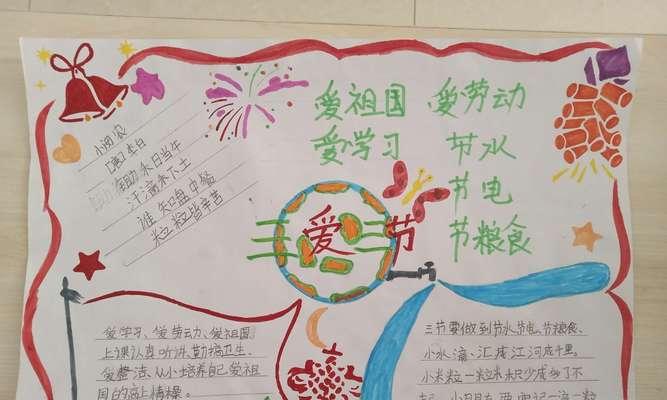 小闵农
[唐]李白
禾日当午
汗滴禾下土
谁知盘中餐
粒粒皆辛苦
爱祖国 爱劳动
爱学习 节水
节电
节粮食
三爱三节
爱学习、爱劳动、爱祖国
上课认真听讲,勤搞卫生、
爱整洁、从小培养自己爱祖
国的高上情操。
三节要做到节水节电、节粮食、
小水滴汇成江河成千里。
小米粒一粒米积少成多了不